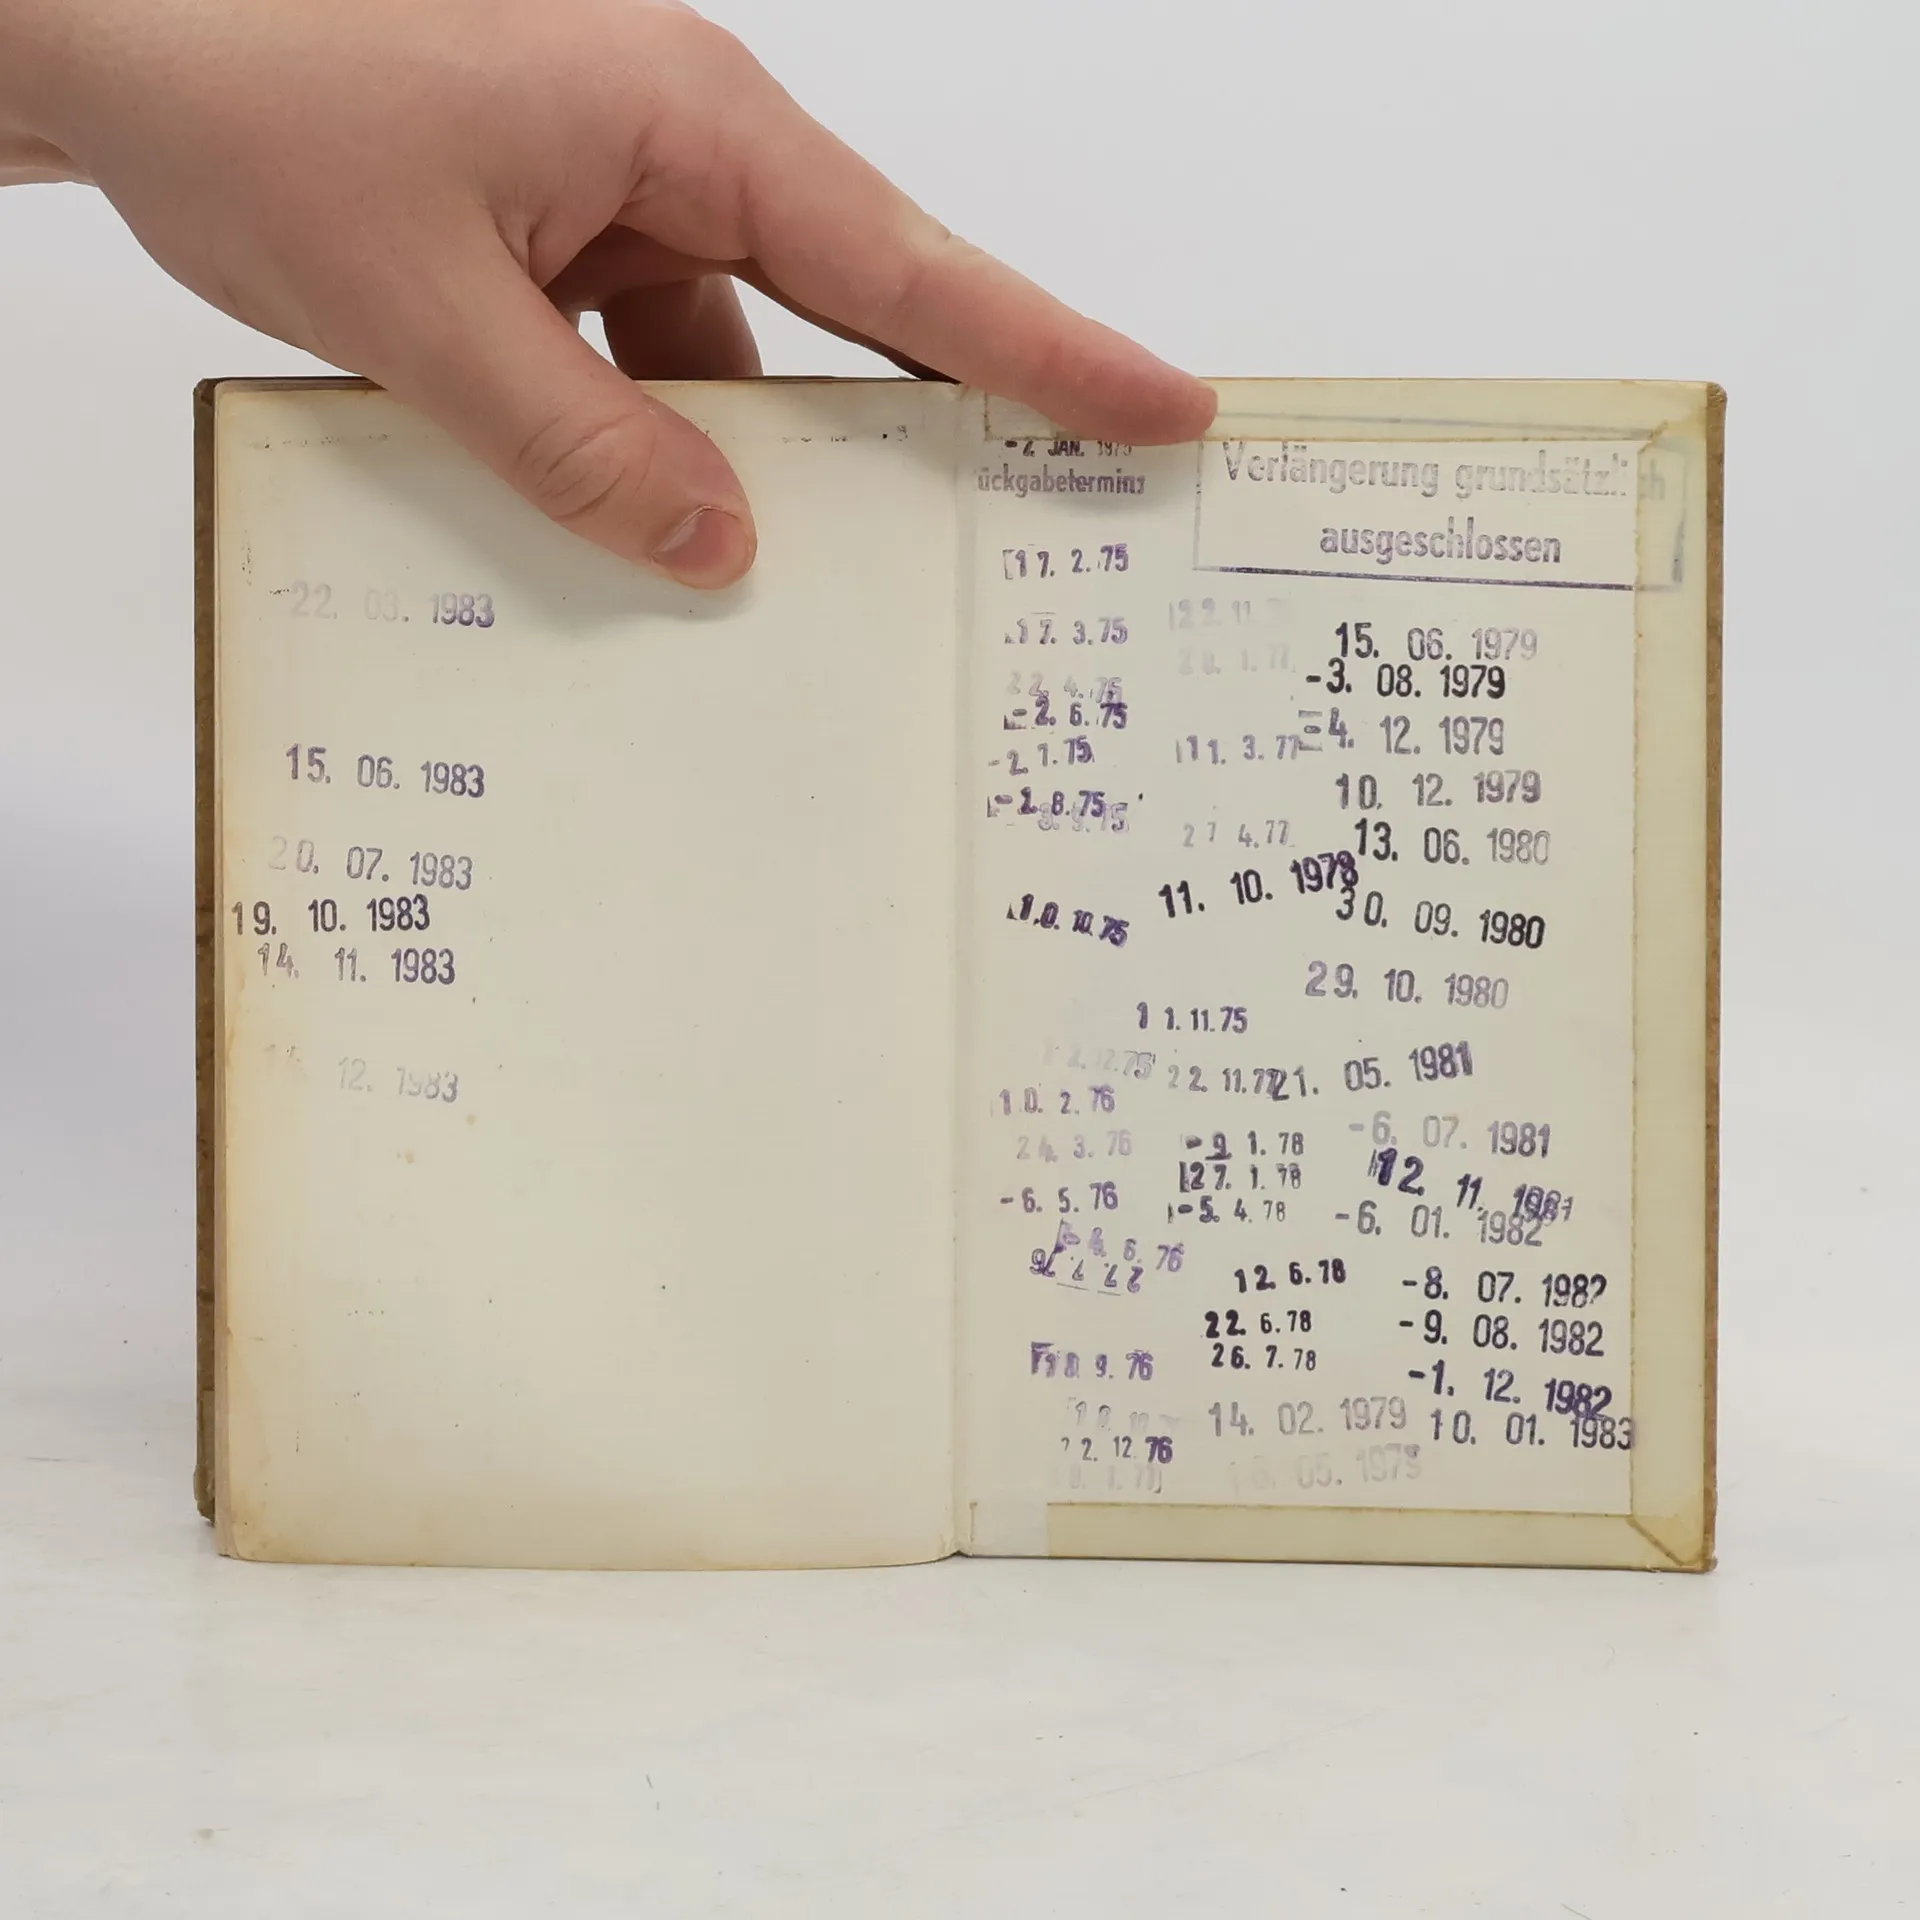 22. 03. 1983
15. 06. 1983
20. 07. 1983
19. 10. 1983
14. 11. 1983
12. 1983
- 2. JAN. 1975
ückgabetermin
17. 2. 75
17. 3. 75
22. 4. 75
-2. 6. 75
-2. 7. 75
-1. 8. 75
10. 10. 75
11. 11. 75
12. 12. 75
10. 2. 76
24. 3. 76
-6. 5. 76
6. 76
22. 7. 76
9. 76
22. 12. 76
Verlängerung grundsätzlich
ausgeschlossen
22. 11.
1. 77
11. 3. 77
27 4. 77
11. 10. 1978
22. 11. 77
-9. 1. 78
27. 1. 78
-5. 4. 78
12. 6. 78
22. 6. 78
26. 7. 78
14. 02. 1979
05. 1979
15. 06. 1979
-3. 08. 1979
-4. 12. 1979
10. 12. 1979
13. 06. 1980
30. 09. 1980
29. 10. 1980
21. 05. 1981
-6. 07. 1981
12. 11. 1981
-6. 01. 1982
-8. 07. 1982
-9. 08. 1982
-1. 12. 1982
10. 01. 1983